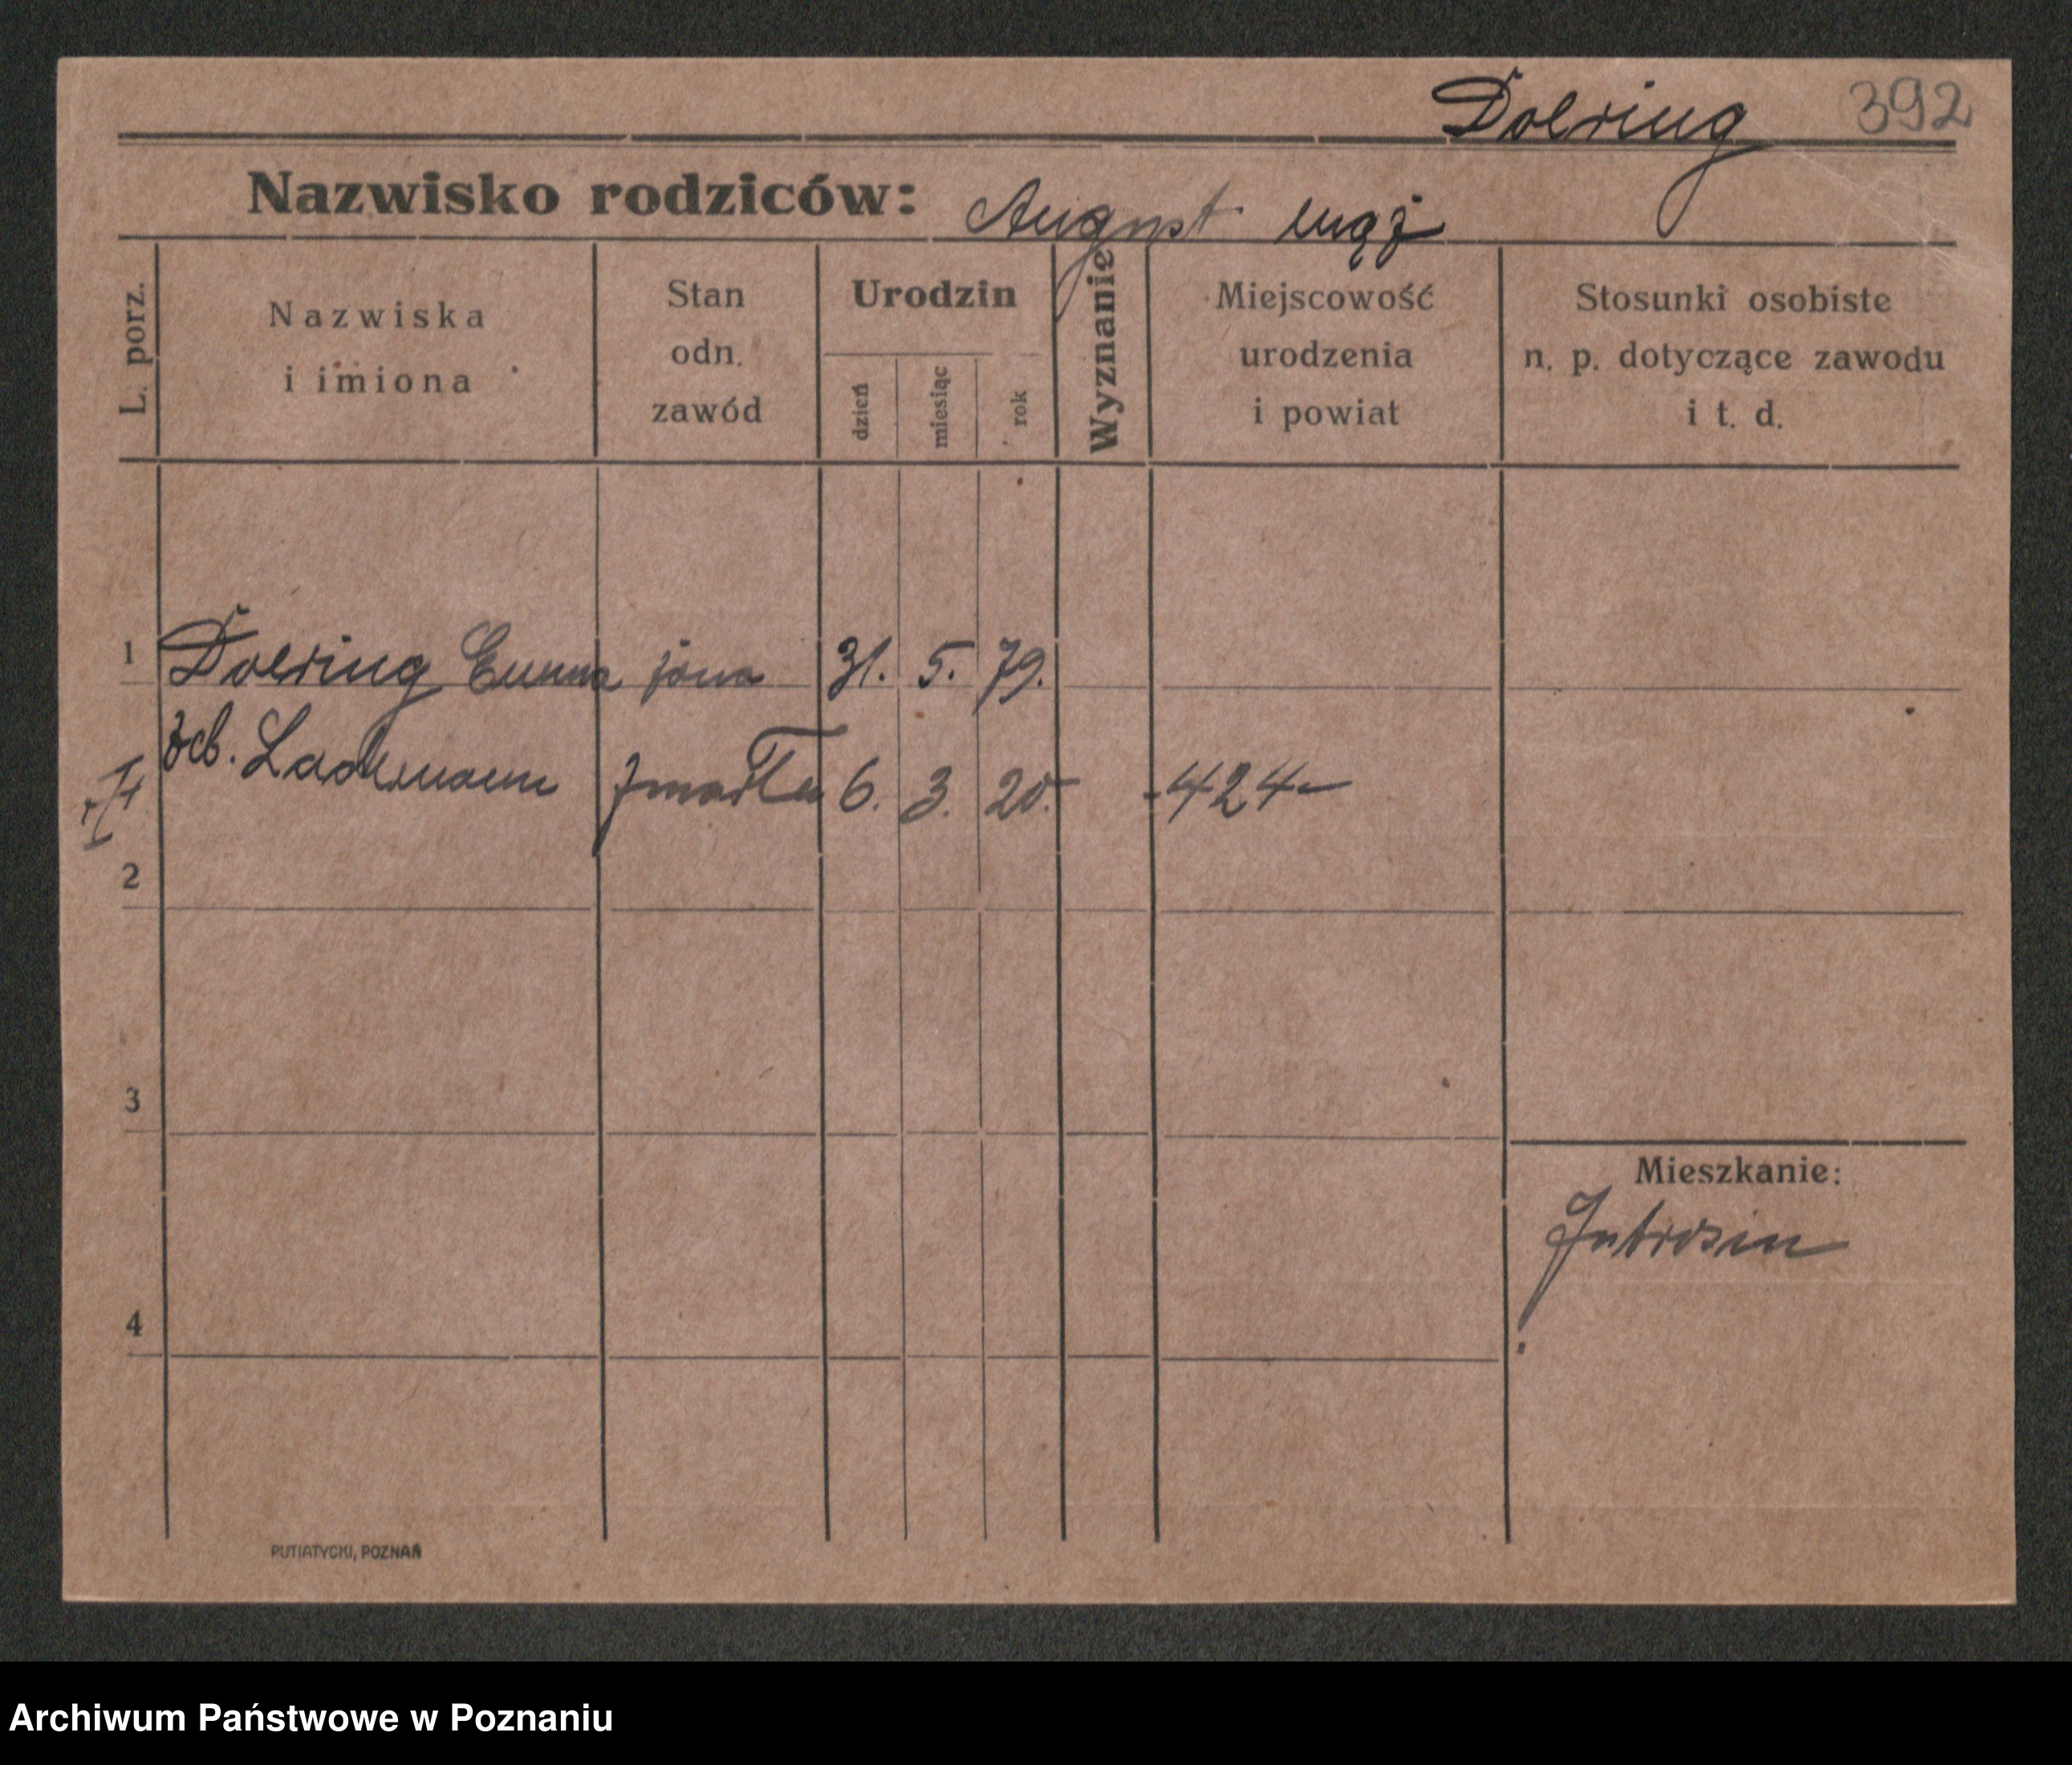 Doering 392
Nazwisko rodziców: August mąż
L. porz.
Nazwiska
i imiona
Stan
odn.
zawód
Urodzin
dzień
miesiąc
rok
Wyznanie
Miejscowość
urodzenia
i powiat
Stosunki osobiste
n. p. dotyczące zawodu
i t. d.
1 Doering Emma żona 31. 5. 79.
Lademann zmarła 6. 3. 20. -424-
2
3
Mieszkanie:
Jutrosin
4
PUTIATYCKI, POZNAŃ
Archiwum Państwowe w Poznaniu